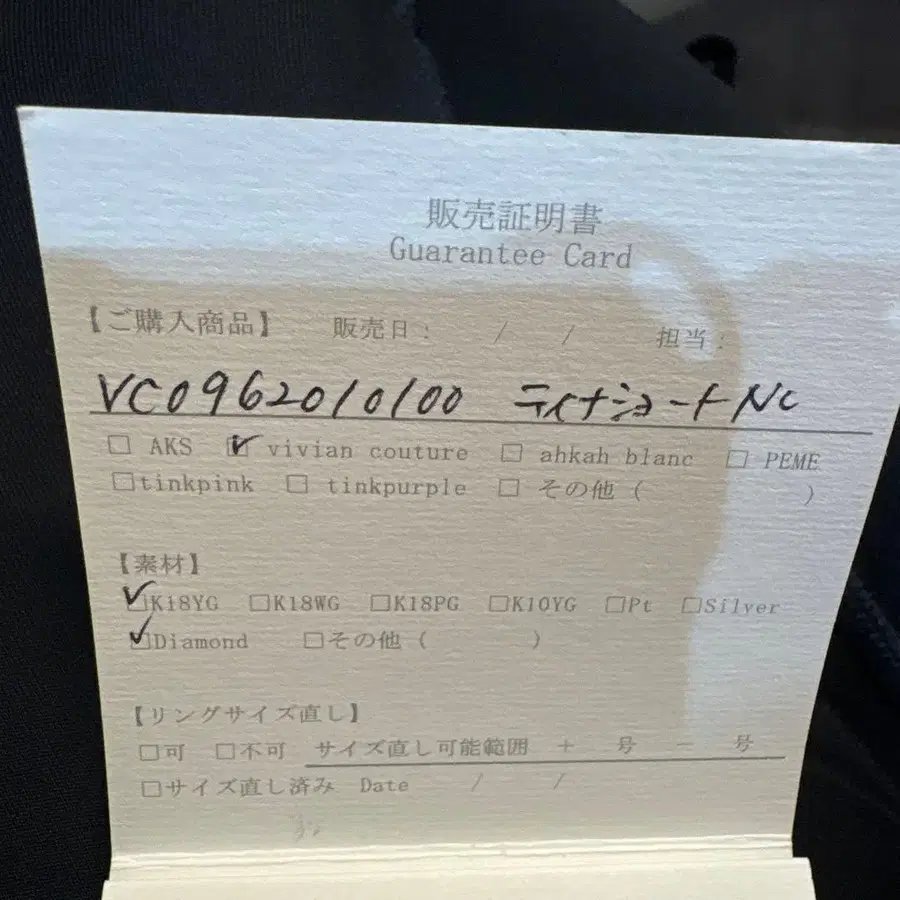 販売証明書
Guarantee Card
【ご購入商品】 販売日: / / 担当:
VC0962010100 ティナショートNC
□ AKS ☑ vivian couture □ ahkah blanc □ PEME
□tinkpink □ tinkpurple □ その他 ( )
【素材】
☑K18YG □K18WG □K18PG □K10YG □Pt □Silver
☑Diamond □その他 ( )
【リングサイズ直し】
□可 □不可 サイズ直し可能範囲 + 号 − 号
□サイズ直し済み Date / /